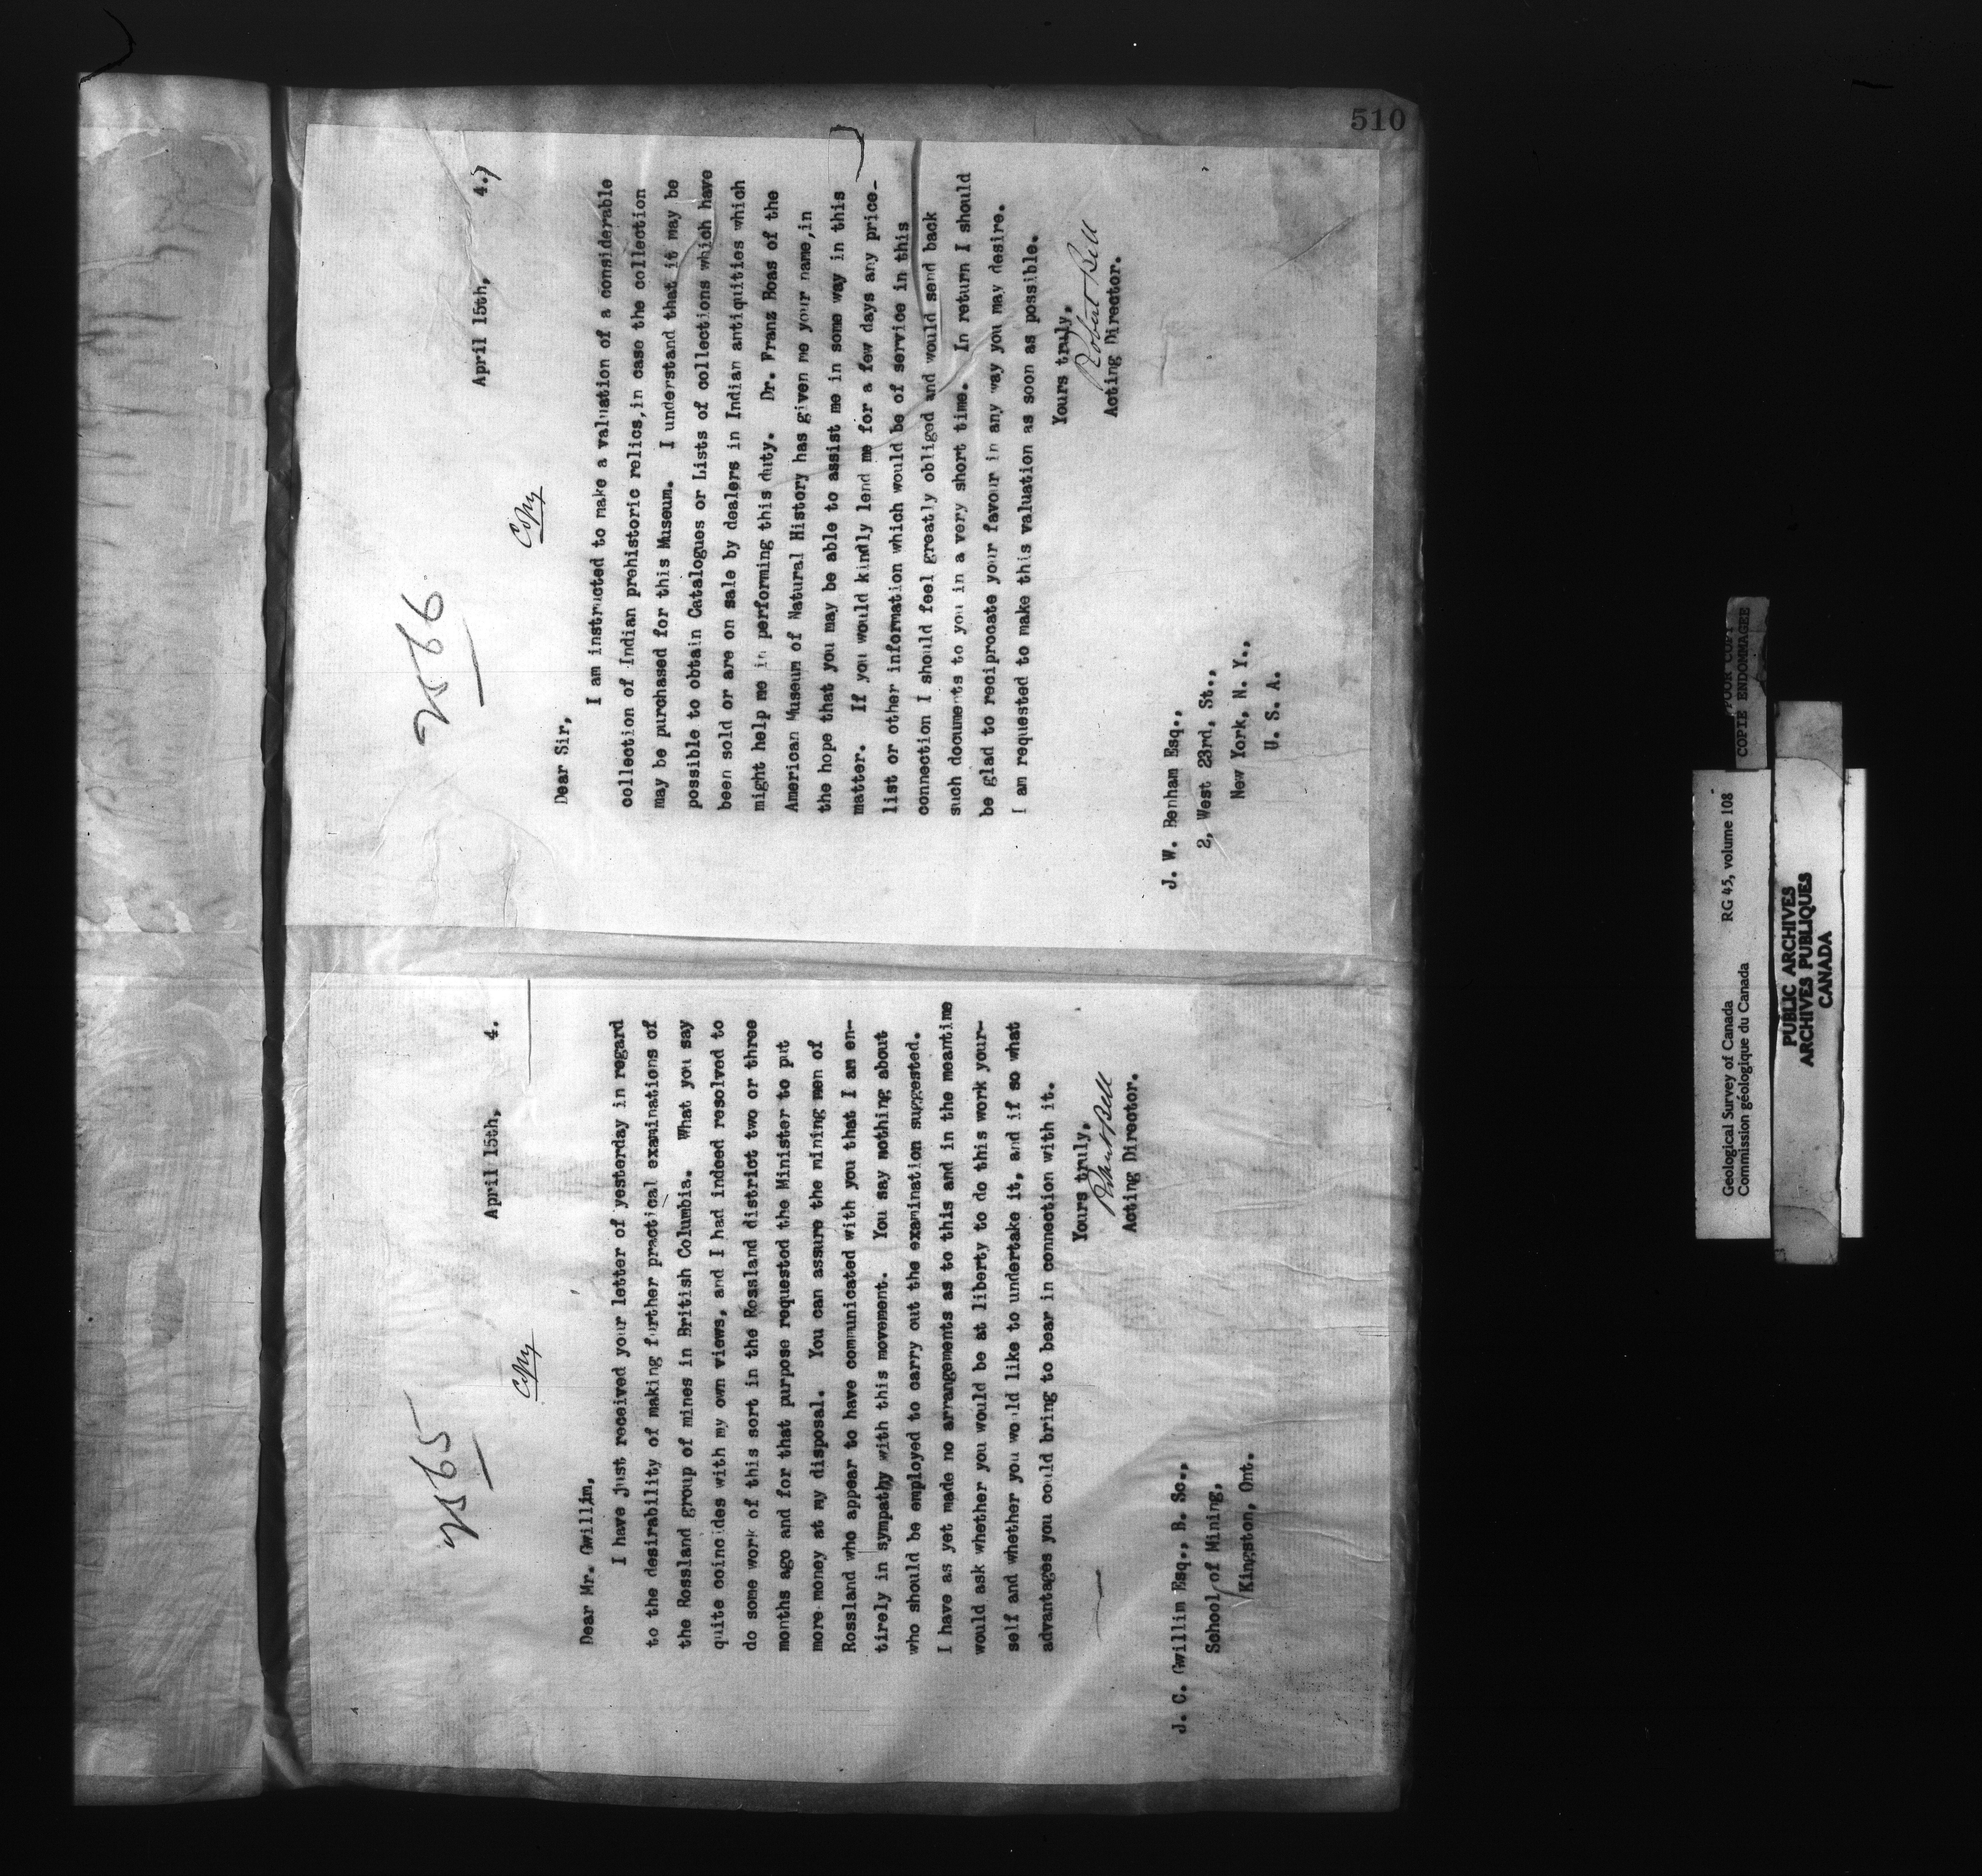 510
2565
April 15th, 4.
Copy
Dear Mr. Gwillim,
I have just received your letter of yesterday in regard
to the desirability of making further practical examinations of
the Rossland group of mines in British Columbia. What you say
quite coincides with my own views, and I had indeed resolved to
do some work of this sort in the Rossland district two or three
months ago and for that purpose requested the Minister to put
more money at my disposal. You can assure the mining men of
Rossland who appear to have communicated with you that I am en-
tirely in sympathy with this movement. You say nothing about
who should be employed to carry out the examination suggested.
I have as yet made no arrangements as to this and in the meantime
would ask whether you would be at liberty to do this work your-
self and whether you would like to undertake it, and if so what
advantages you could bring to bear in connection with it.
Yours truly,
Robert Bell
Acting Director.
J. C. Gwillim Esq., B. Sc.,
School of Mining,
Kingston, Ont.
2566
April 15th, 4.
Copy
Dear Sir,
I am instructed to make a valuation of a considerable
collection of Indian prehistoric relics, in case the collection
may be purchased for this Museum. I understand that it may be
possible to obtain Catalogues or Lists of collections which have
been sold or are on sale by dealers in Indian antiquities which
might help me in performing this duty. Dr. Franz Boas of the
American Museum of Natural History has given me your name, in
the hope that you may be able to assist me in some way in this
matter. If you would kindly lend me for a few days any price-
list or other information which would be of service in this
connection I should feel greatly obliged and would send back
such documents to you in a very short time. In return I should
be glad to reciprocate your favour in any way you may desire.
I am requested to make this valuation as soon as possible.
Yours truly,
Robert Bell
Acting Director.
J. W. Benham Esq.,
2, West 23rd, St.,
New York, N. Y.,
U. S. A.
Geological Survey of Canada RG 45, volume 108
Commission géologique du Canada
POOR COPY
COPIE ENDOMMAGEE
PUBLIC ARCHIVES
ARCHIVES PUBLIQUES
CANADA